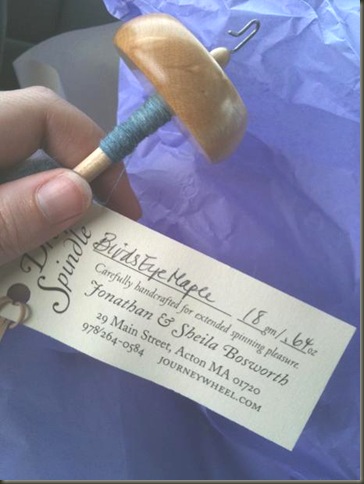 Spindle
BirdsEyeMaple 18 gm/.64 oz
Carefully handcrafted for extended spinning pleasure.
Jonathan & Sheila Bosworth
29 Main Street, Acton MA 01720
978/264-0584 JOURNEYWHEEL.COM